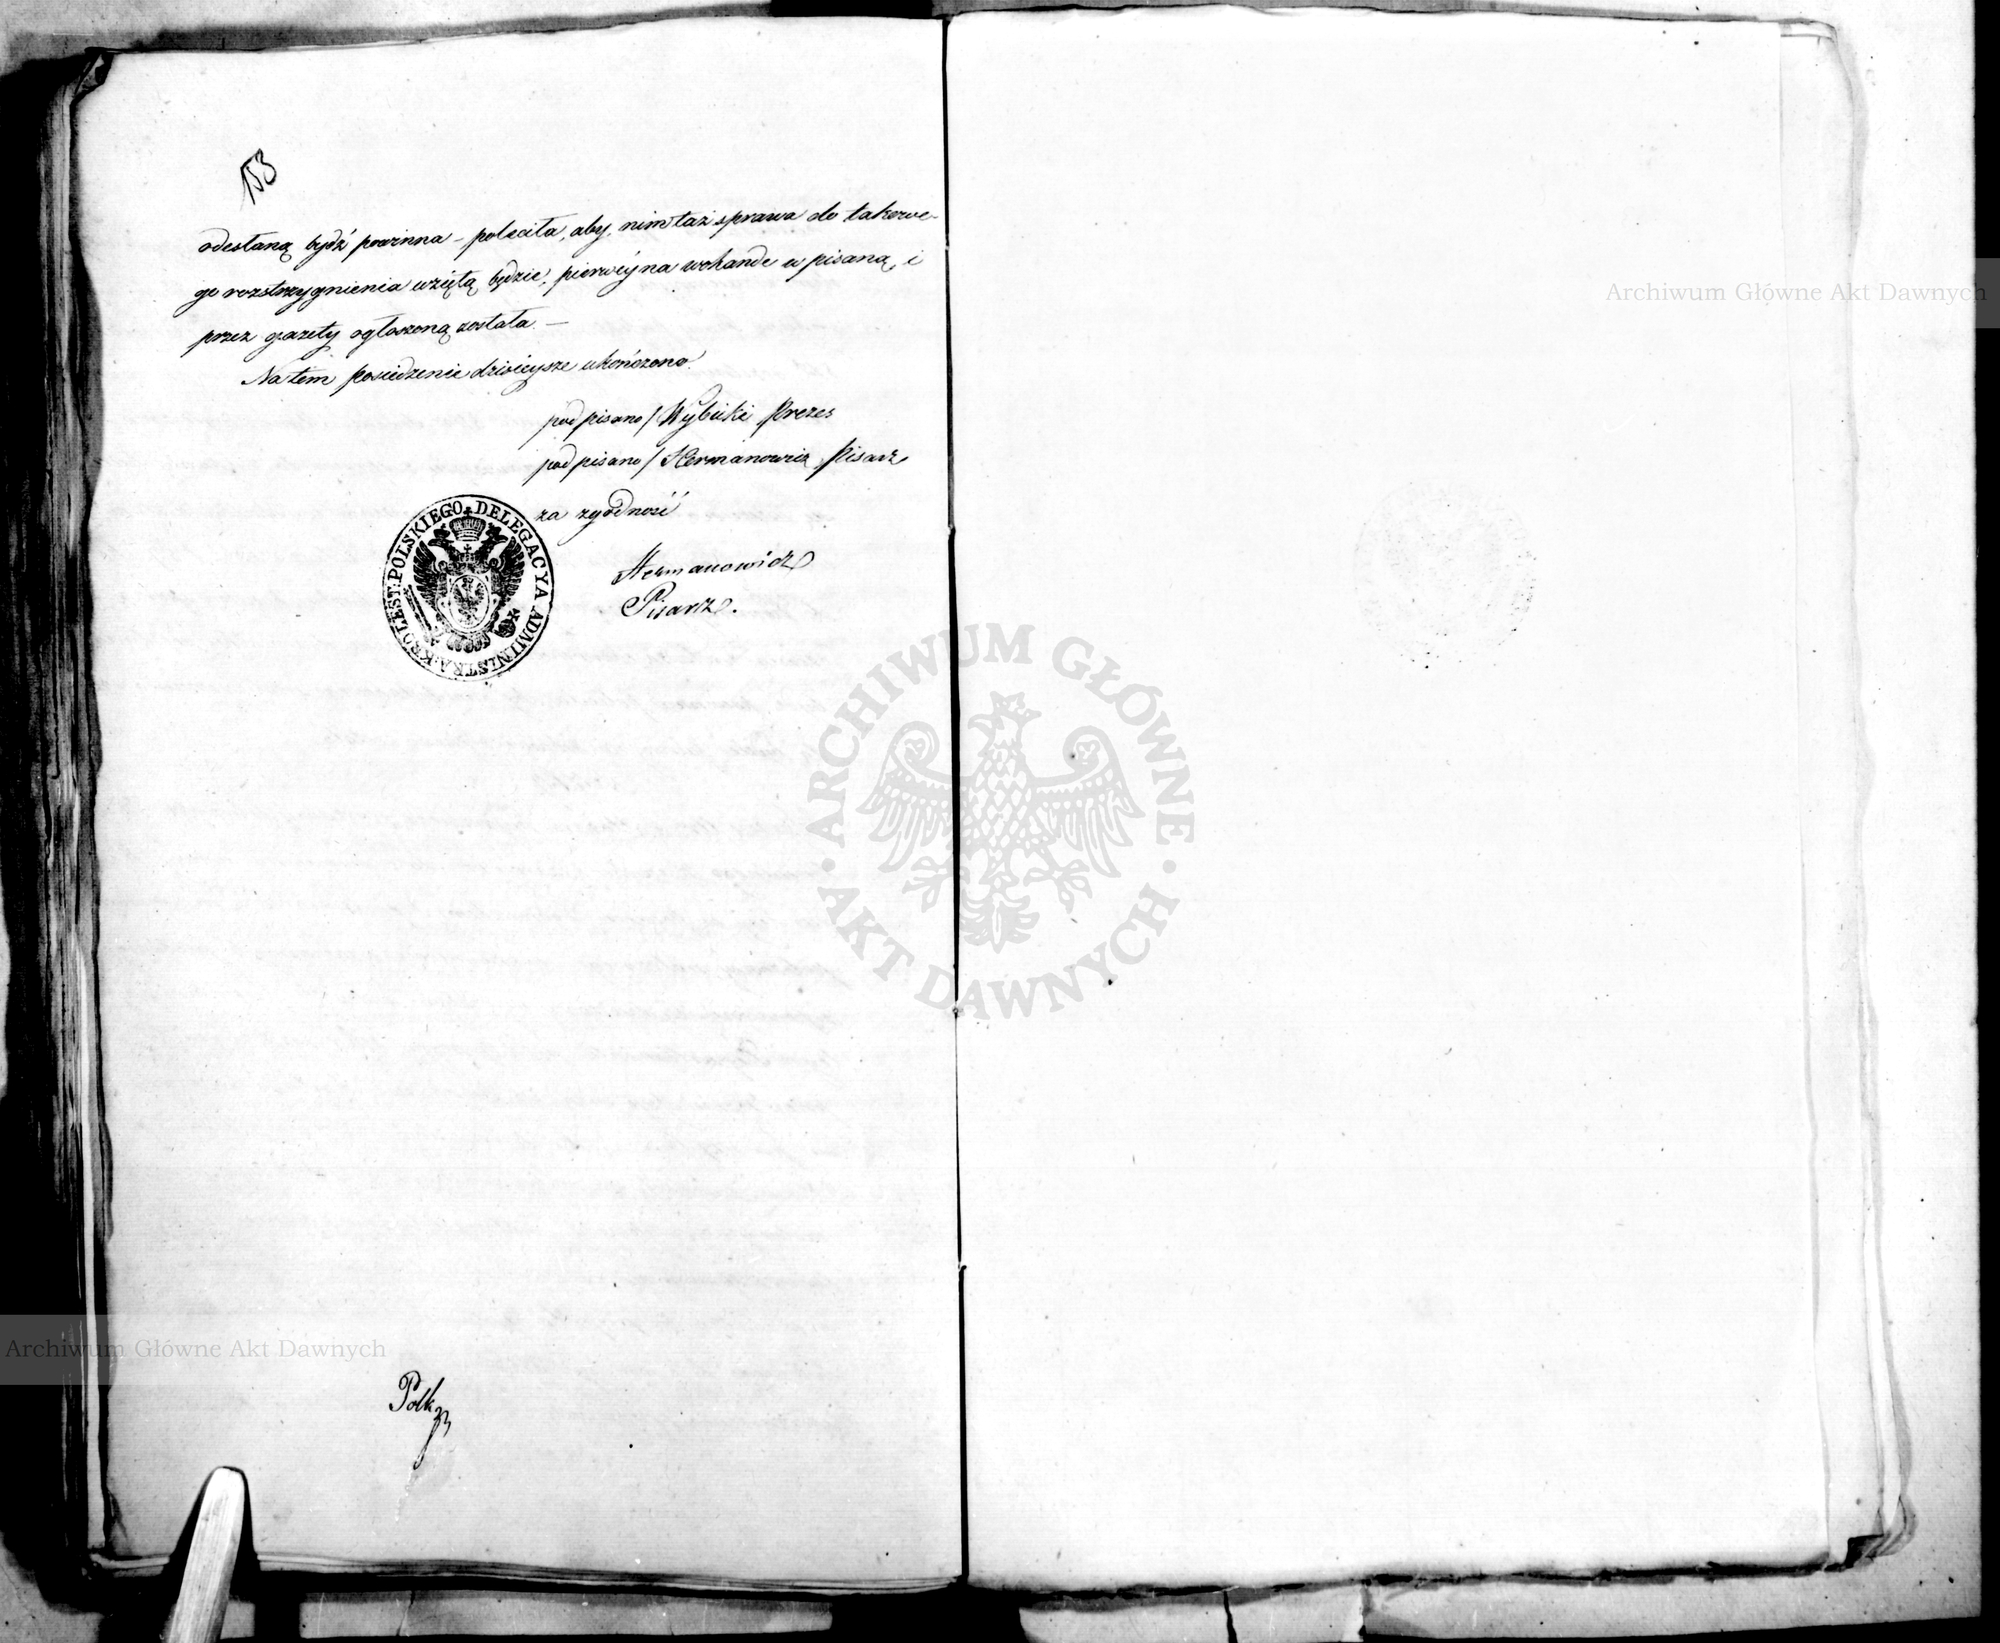 153
odesłaną bydź powinna – poleciła, aby, nim taż sprawa do takowe-
go rozstrzygnienia wziętą będzie, pierwéy na wokande w pisaną, i
przez gazety ogłoszoną została. –
Na tem posiedzenie dzisieysze ukończono.
podpisano / Wybicki Prezes
podpisano / Hermanowicz Pisarz
za zgodność
Hermanowicz
Pisarz.
KRÓLEST: POLSKIEGO DELEGACYA ADMINISTRA:
ARCHIWUM GŁÓWNE AKT DAWNYCH
Archiwum Główne Akt Dawnych
Archiwum Główne Akt Dawnych